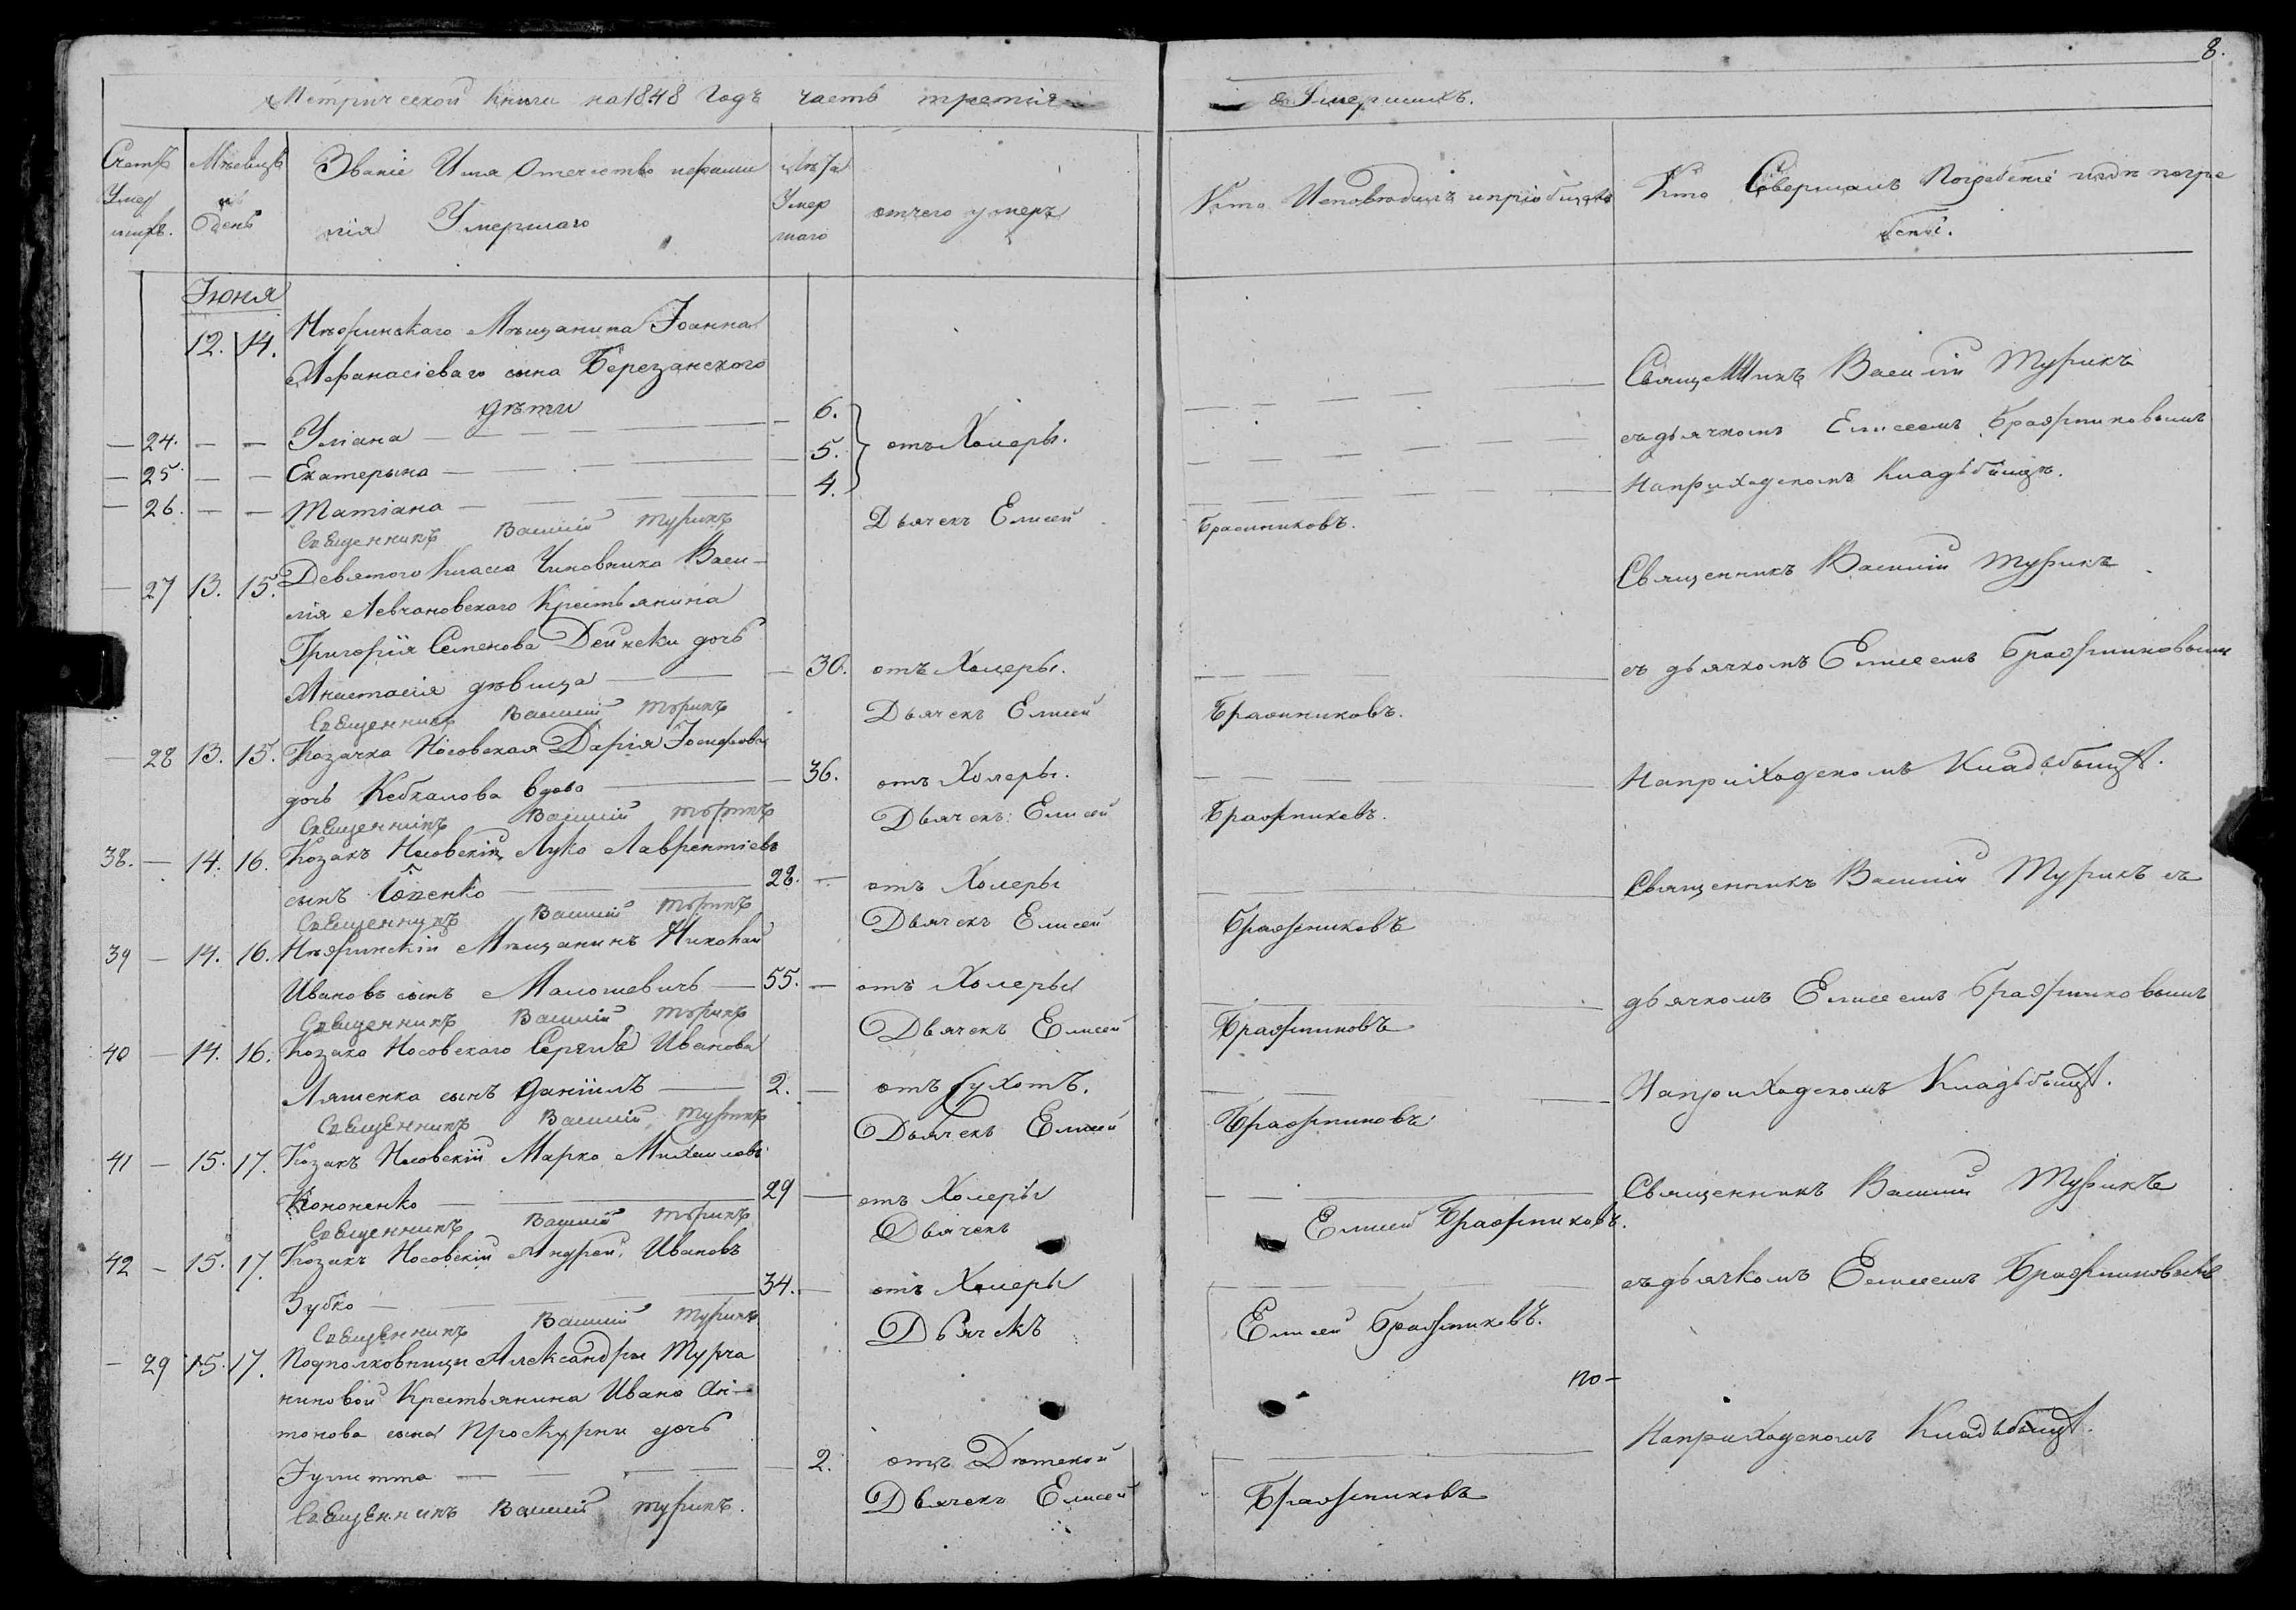 8.
Метрической книги на 1848 Годъ часть третія о Умершихъ.
Счетъ Умершихъ.
Мѣсяцъ и День
Званіе Имя Отечество и фамилія Умершаго
Лѣта Умершаго
отчего умеръ
Кто Исповѣдывалъ и пріобщалъ
Кто Совершалъ Погребеніе и гдѣ погребены.
Іюня
12. 14. Нѣжинскаго Мѣщанина Іоанна
Афанасіеваго сына Березанского
дѣти
Священникъ Василій Турикъ
— 24. — — Уліана — 6.
— 25. — — Екатерына — 5. отъ Холеры.
— 26. — — Татіана — 4.
съ дьячкомъ Елисеемъ Бражниковымъ
На приходскомъ Кладьбищѣ.
Священникъ Василій Турикъ Дьячекъ Елисей Бражниковъ.
— 27 13. 15. Девятого Класса Чиновника Васи-
лія Левчановского Крестьянина
Григорія Семенова Дейнеки дочь
Анастасія дѣвица — 30. отъ Холеры.
Священникъ Василій Турикъ
Священникъ Василій Турикъ Дьячекъ Елисей Бражниковъ.
съ дьячкомъ Елисеемъ Бражниковымъ
— 28 13. 15. Козачка Носовская Дарія Іосифова
дочь Кебкалова вдова — 36. отъ Холеры.
На приходскомъ Кладьбищѣ.
Священникъ Василій Турикъ Дьячекъ Елисей Бражниковъ.
38. — 14. 16. Козакъ Носовскій Луко Лаврентіевъ
сынъ — 28. — отъ Холеры
Священникъ Василій Турикъ съ
Священникъ Василій Турикъ Дьячекъ Елисей Бражниковъ
39 — 14. 16. Нѣжинскій Мѣщанинъ Николай
Ивановъ сынъ Малошевичъ — 55. — отъ Холеры
дьячкомъ Елисеемъ Бражниковымъ
Священникъ Василій Турикъ Дьячекъ Елисей Бражниковъ
40 — 14. 16. Козака Носовского Сергія Иванова
Ляшенка сынъ Даніилъ — 2. — отъ сухотъ.
На приходскомъ Кладьбищѣ.
Священникъ Василій Турикъ Дьячекъ Елисей Бражниковъ
41 — 15. 17. Козакъ Носовскій Марко Михайловъ
Кононенко — 29 — отъ Холеры
Священникъ Василій Турикъ
Священникъ Василій Турикъ Дьячекъ Елисей Бражниковъ.
42 — 15. 17. Козакъ Носовскій Андрей Ивановъ
Зубко — 34. — отъ Холеры
съ дьячкомъ Елисеемъ Бражниковымъ
Священникъ Василій Турикъ Дьячекъ Елисей Бражниковъ.
— 29 15. 17. Подполковници Александры Турча
ниновой Крестьянина Ивана Ан-
тонова сына Проскурни дочь
Іулитта — 2. отъ Дѣтской
по-
На приходскомъ Кладьбищѣ.
Священникъ Василій Турикъ. Дьячекъ Елисей Бражниковъ